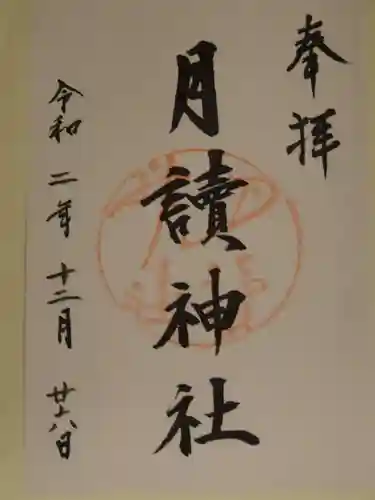 奉拝
月讀神社
令和二年十二月廿八日